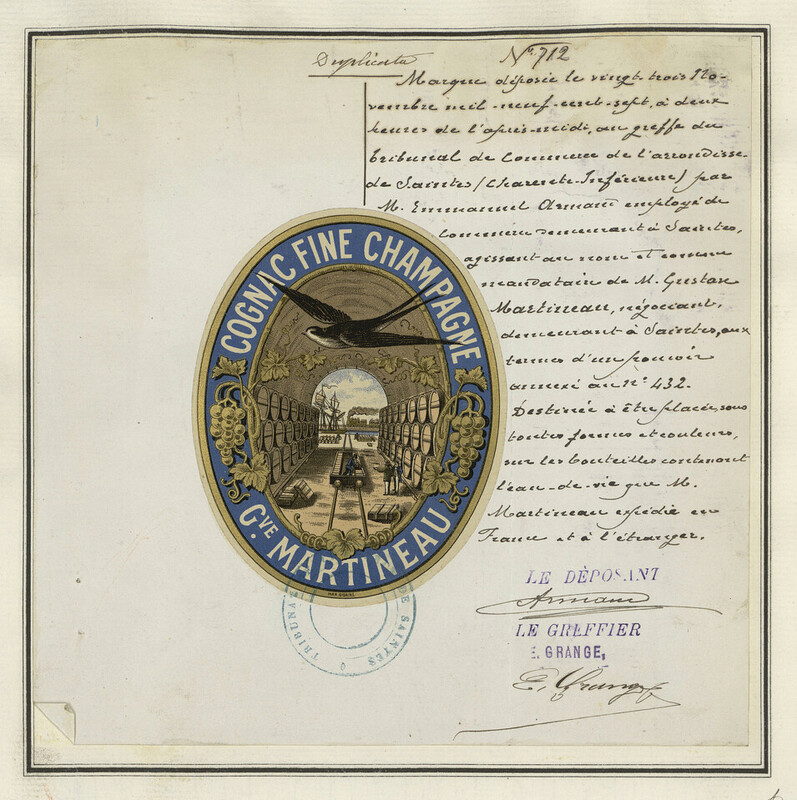 Duplicata
No 712
Marque déposée le vingt trois No-
vembre mil-neuf-cent-sept, à deux
heures de l'après-midi, au greffe du
Tribunal de Commerce de l'arrondisse-
de Saintes (Charente-Inférieure) par
M. Emmanuel Armand employé de
Commerce demeurant à Saintes,
agissant au nom et comme
mandataire de M. Gustave
Martineau, négociant,
demeurant à Saintes, aux
termes d'un pouvoir
annexé au No 432.
Destinée à être placée, sous
toutes formes et couleurs,
sur les bouteilles contenant
l'eau-de-vie que M.
Martineau expédie en
France et à l'étranger.
COGNAC FINE CHAMPAGNE
GVE MARTINEAU
LE DÉPOSANT
Armand
LE GREFFIER
E. GRANGE,
E. Grange
TRIBUNAL DE SAINTES